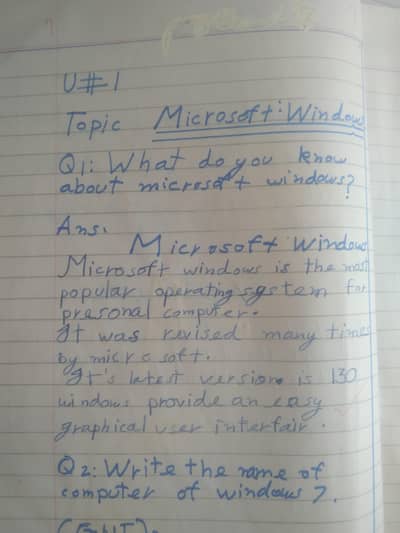 U#1
Topic Microsoft: Window
Q1: What do you know
about microsoft windows?
Ans.
Microsoft Window
Microsoft windows is the most
popular operating system for
presonal computer.
It was revised many times
by micro soft.
It's latest version is 130
windows provide an easy
graphical user interfair.
Q2: Write the name of
computer of windows 7.